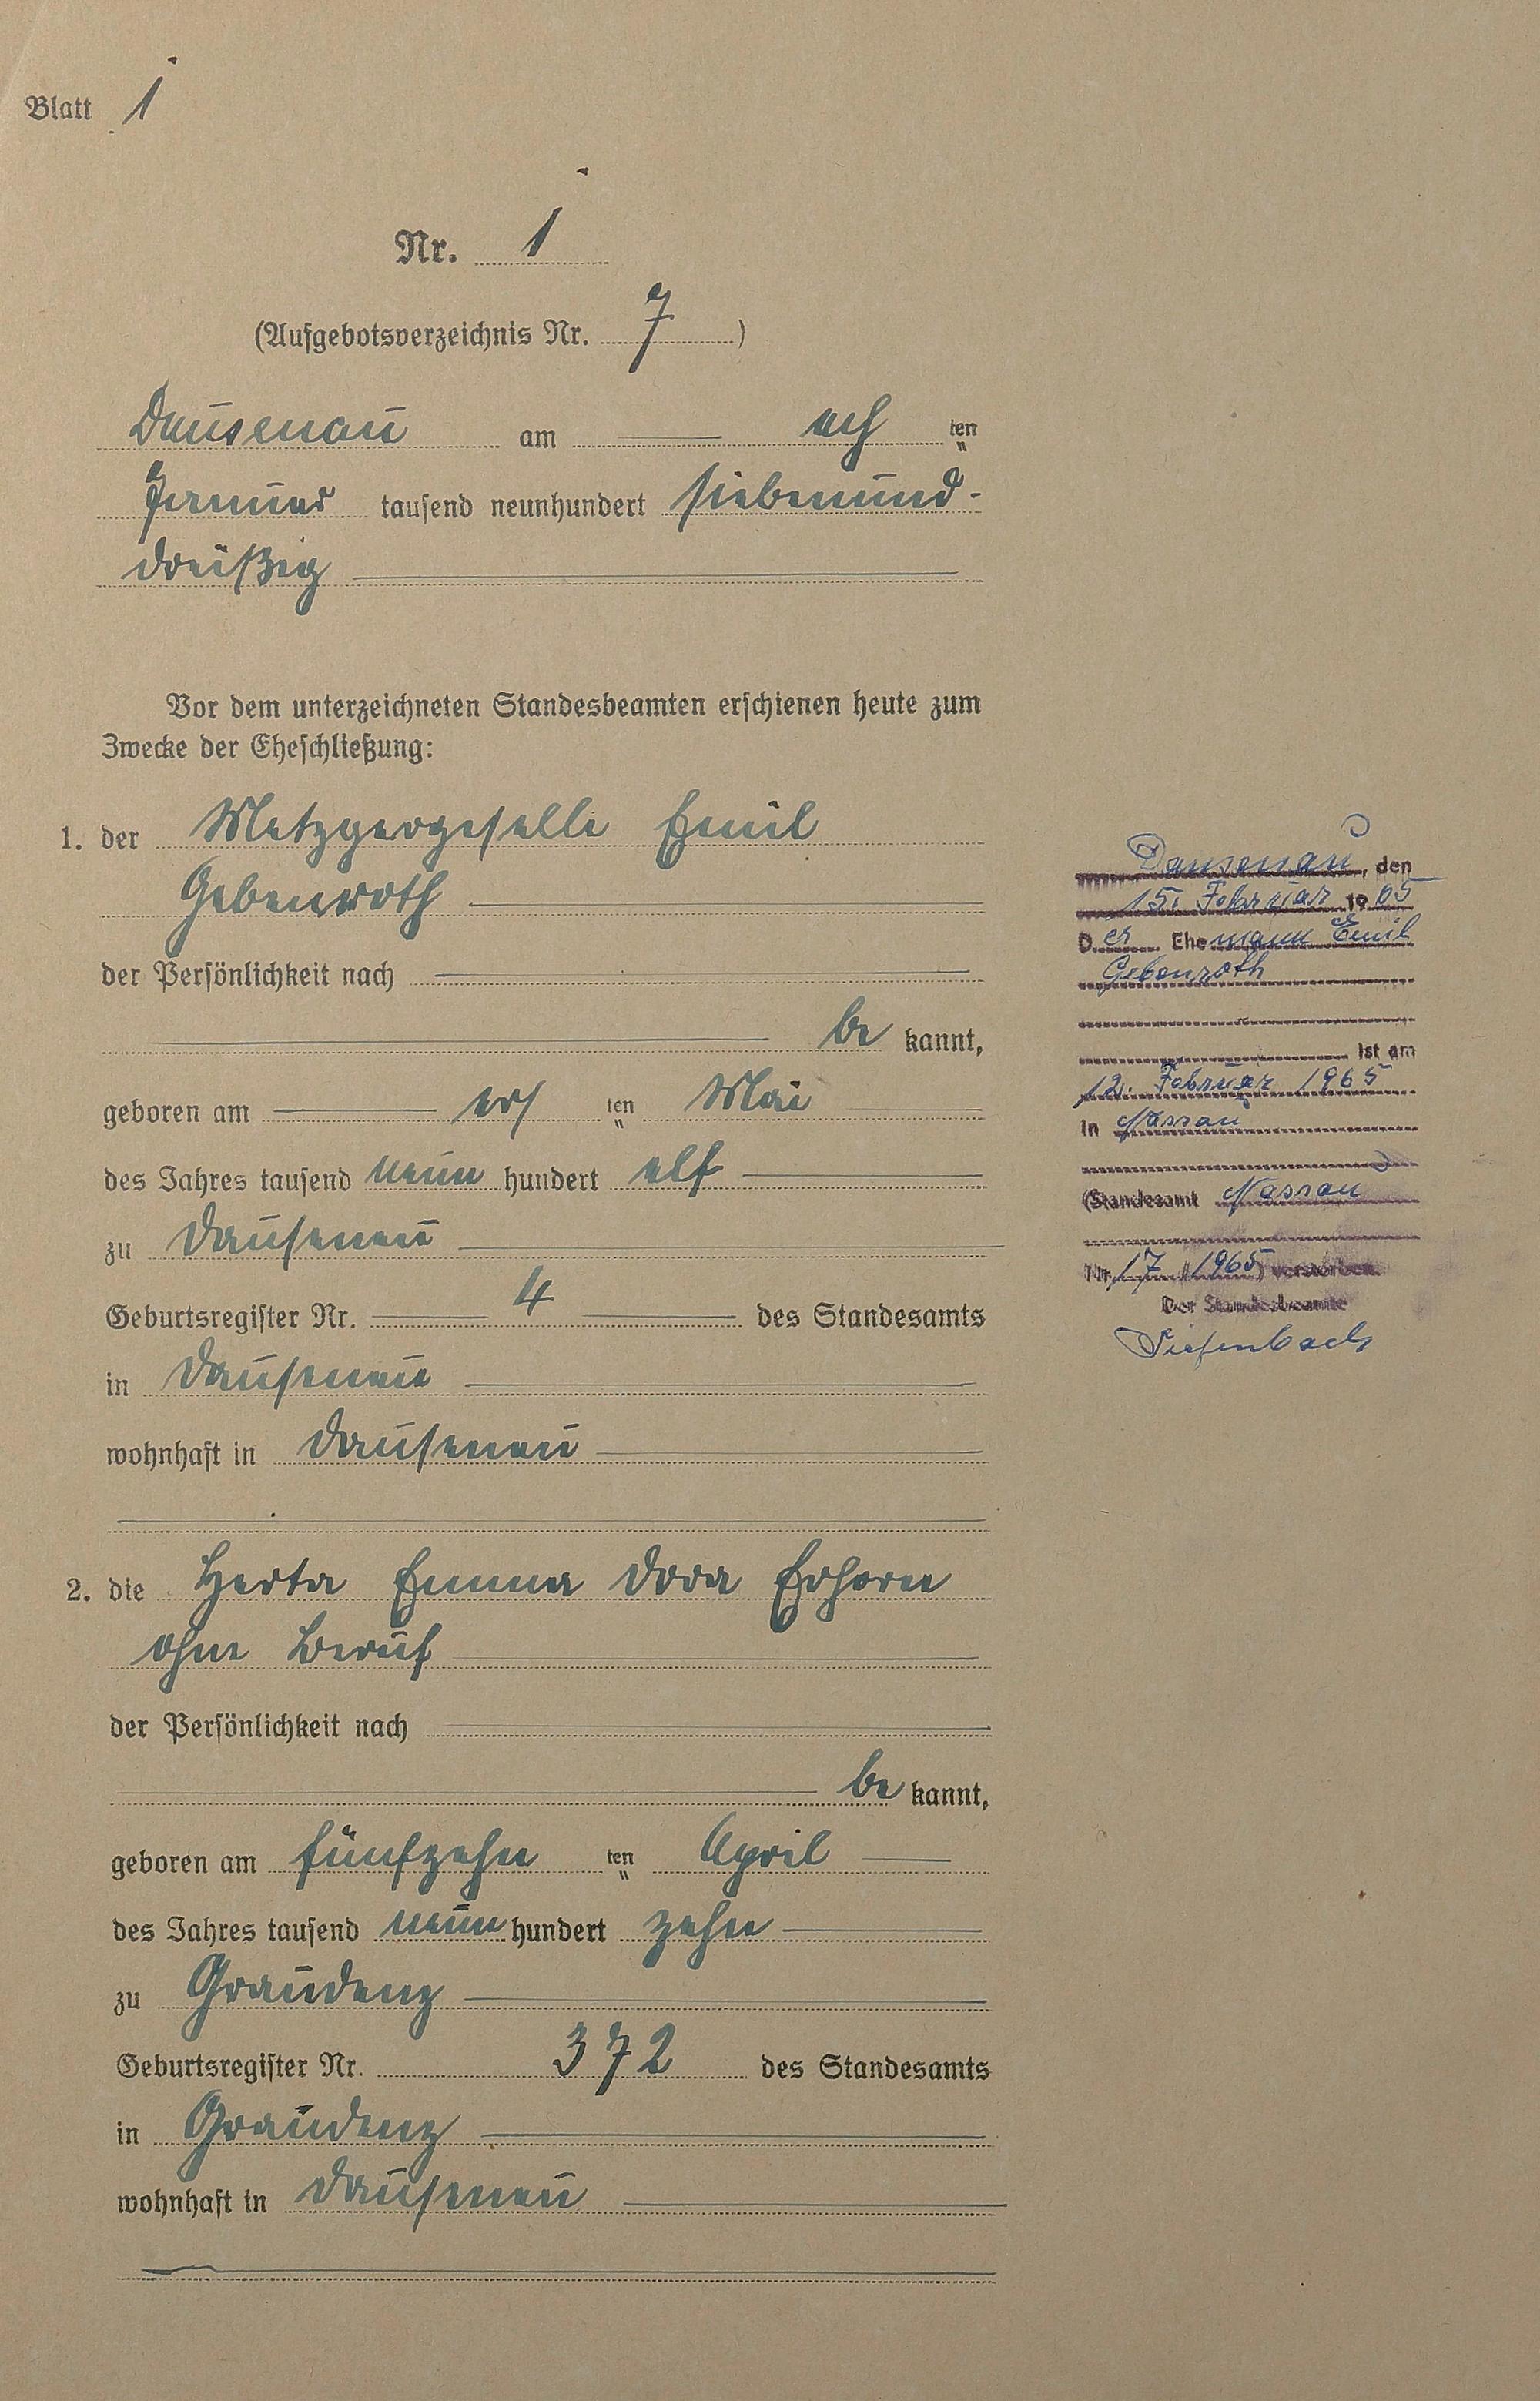 Blatt 1
Nr. 1
(Aufgebotsverzeichnis Nr. 7)
Dausenau am ach ten
Januar tausend neunhundert siebenund-
dreißig
Vor dem unterzeichneten Standesbeamten erschienen heute zum
Zwecke der Eheschließung:
1. der Metzgergeselle Emil
Gebenroth
der Persönlichkeit nach
be kannt,
geboren am ers ten Mai
des Jahres tausend neun hundert elf
zu Dausenau
Geburtsregister Nr. 4 des Standesamts
in Dausenau
wohnhaft in Dausenau
2. die Herta Emma Dora Erhorn
ohne Beruf
der Persönlichkeit nach
be kannt,
geboren am fünfzehn ten April
des Jahres tausend neun hundert zehn
zu Graudenz
Geburtsregister Nr. 372 des Standesamts
in Graudenz
wohnhaft in Dausenau
Dausenau, den
15. Februar 1965
Der Ehemann Emil
Gebenroth
ist am
12. Februar 1965
in Nassau
(Standesamt Nassau
Nr. 17/1965) verstorben.
Der Standesbeamte